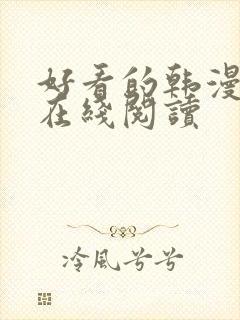 好看的韩漫
在綫閱讀
冷風兮兮